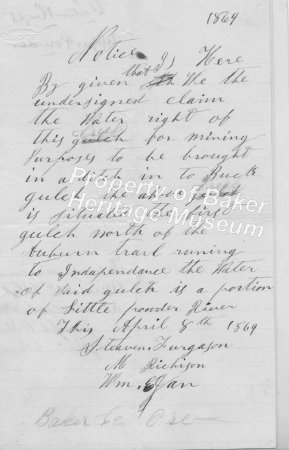 1869
Notice Is Here
By given that We the
undersigned claim
the Water right of
this gulch for mining
Purposes to be brought
in a ditch in to Buck
gulch the above gulch
is Situated the first
gulch north of the
Auburn trail runing
to Independance the Water
of Said gulch is a portion
of Little powder River
This April 8th 1869
Steaven Furgason
M Richison
Wm
Baker Co Ore
Property of Baker
Heritage Museum